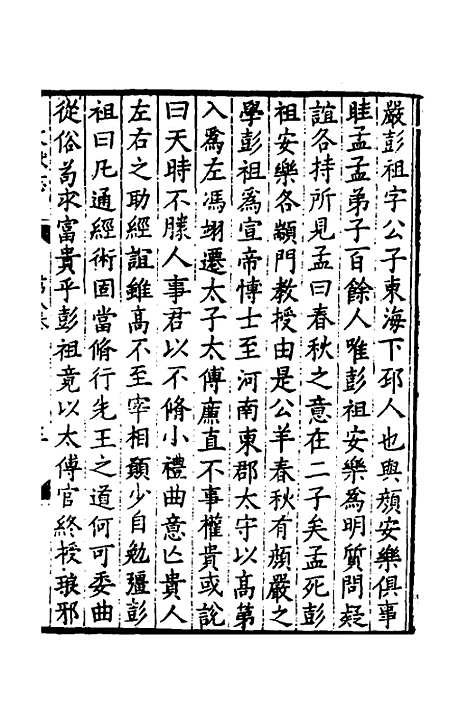 嚴彭祖字公子東海下邳人也與顏安樂俱事
眭孟孟弟子百餘人唯彭祖安樂爲明質問疑
誼各持所見孟曰春秋之意在二子矣孟死彭
祖安樂各顓門教授由是公羊春秋有顏嚴之
學彭祖爲宣帝愽士至河南東郡太守以高第
入爲左馮翊遷太子太傅廉直不事權貴或說
曰天時不勝人事君以不脩小禮曲意亡貴人
左右之助經誼雖高不至宰相願少自勉彊彭
祖曰凡通經術固當脩行先王之道何可委曲
從俗苟求富貴乎彭祖竟以太傅官終授琅邪